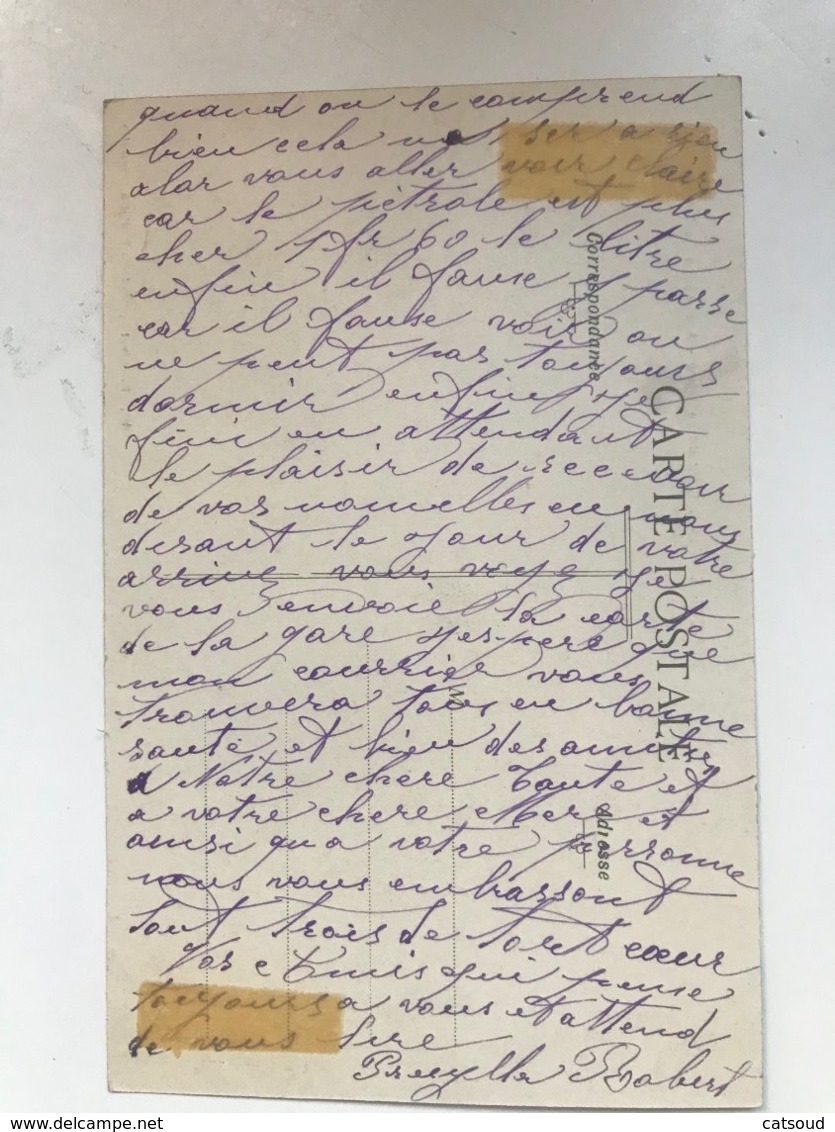 quand on le comprend
bien cela ser a rien
alor vous aller voir claire
car le pétrole est plus
cher 1 fr 60 le litre
enfin il fause y passe
car il fause voir on
ne peut pas toujours
dormir enfin je
fini en attendant
le plaisir de recevoir
de vos nouvelles en nous
disant le jour de votre
arriver vous voyez je
vous envoie la carte
de la gare j'espere que
mon courrier vous
trouvera tous en bonne
santé et bien des amitiés
a Notre chere Tante et
a votre chere Mer et
ainsi qu a votre personne
nous vous embrassont
tout trois de tout cœur
Vos Amis qui pense
toujours a vous et attend
de vous lire
Robert
CARTE POSTALE
Correspondance
Adresse
N
www.delcampe.net
catsoud